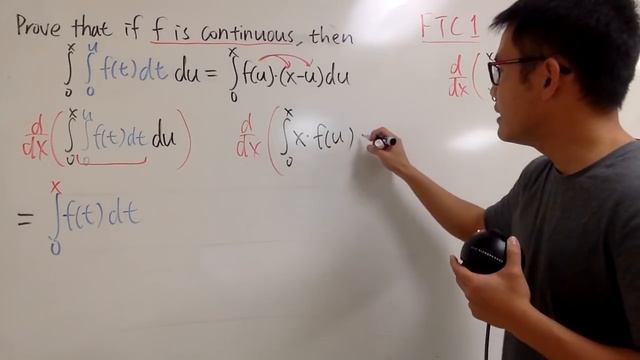 Prove that if f is continuous, then
∫₀ˣ ∫₀ᵘ f(t)dt du = ∫₀ˣ f(u)·(x-u)du
FTC1
d/dx (
x
d/dx ( ∫₀ˣ ∫₀ᵘ f(t)dt du )
d/dx ( ∫₀ˣ x·f(u)
= ∫₀ˣ f(t)dt